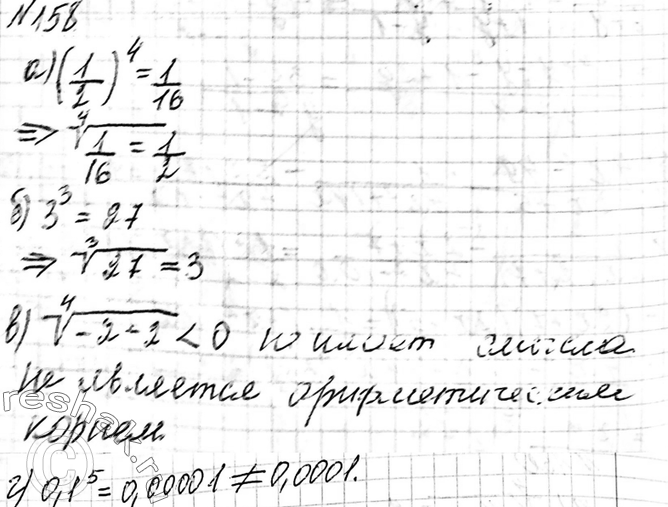 №158
а) (1/2)^4 = 1/16
⇒ ⁴√(1/16) = 1/2
б) 3³ = 27
⇒ ³√27 = 3
в) ⁴√-2 - 2 < 0 смысла
не является арифметическим
корнем.
г) 0,1⁵ = 0,00001 ≠ 0,0001.